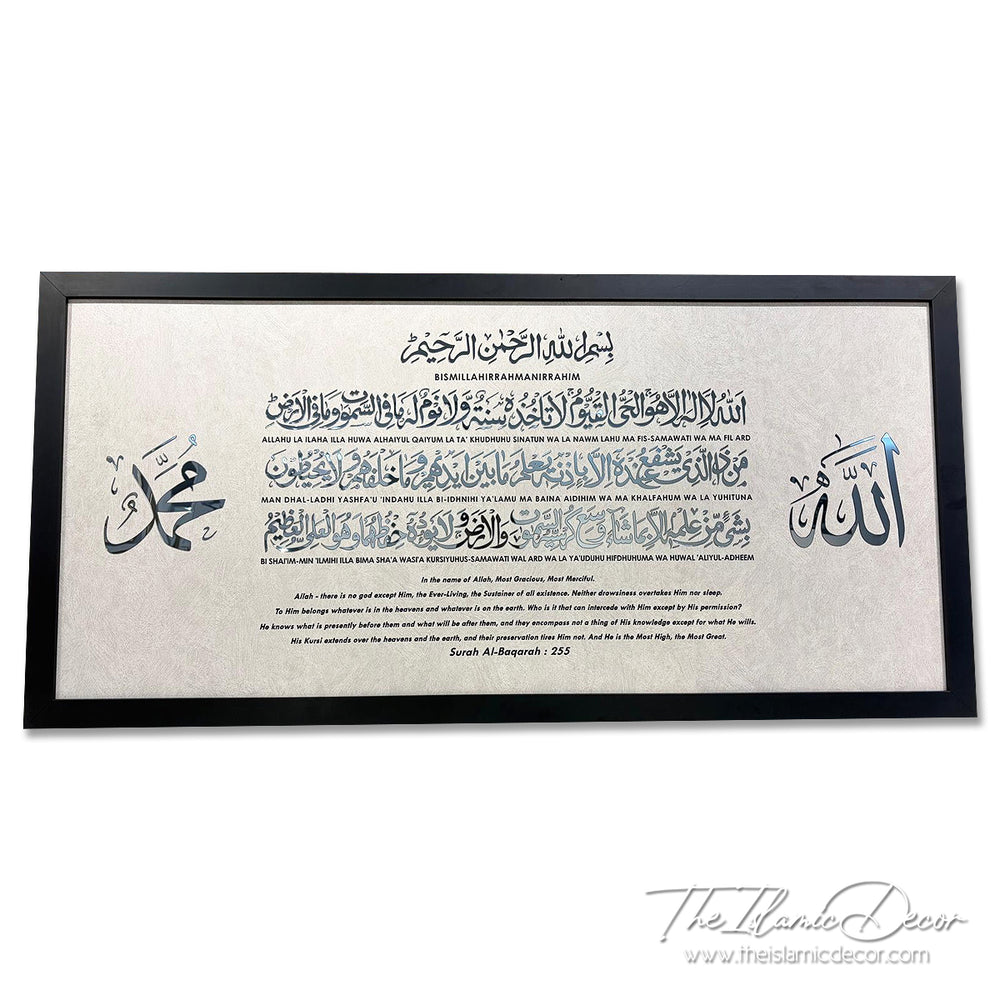 بِسْمِ اللهِ الرَّحْمٰنِ الرَّحِيْمِ
BISMILLAHIRRAHMANIRRAHIM
اَللهُ لَا اِلٰهَ اِلَّا هُوَ الْحَيُّ الْقَيُّوْمُ لَا تَأْخُذُهٗ سِنَةٌ وَّلَا نَوْمٌ لَهٗ مَا فِي السَّمٰوٰتِ وَمَا فِي الْاَرْضِ
ALLAHU LA ILAHA ILLA HUWA ALHAIYUL QAIYUM LA TA' KHUDHUHU SINATUN WA LA NAWM LAHU MA FIS-SAMAWATI WA MA FIL ARD
مَنْ ذَا الَّذِيْ يَشْفَعُ عِنْدَهٗ اِلَّا بِاِذْنِهٖ يَعْلَمُ مَا بَيْنَ اَيْدِيْهِمْ وَمَا خَلْفَهُمْ وَلَا يُحِيْطُوْنَ
MAN DHAL-LADHI YASHFA'U 'INDAHU ILLA BI-IDHNIHI YA'LAMU MA BAINA AIDIHIM WA MA KHALFAHUM WA LA YUHITUNA
بِشَيْءٍ مِّنْ عِلْمِهٖ اِلَّا بِمَا شَآءَ وَسِعَ كُرْسِيُّهُ السَّمٰوٰتِ وَالْاَرْضَ وَلَا يَئُوْدُهٗ حِفْظُهُمَا وَهُوَ الْعَلِيُّ الْعَظِيْمُ
BI SHAI'IM-MIN 'ILMIHI ILLA BIMA SHA'A WASI'A KURSIYUHUS-SAMAWATI WAL ARD WA LA YA'UDUHU HIFDHUHUMA WA HUWAL 'ALIYUL-ADHEEM
الله
محمد
In the name of Allah, Most Gracious, Most Merciful.
Allah - there is no god except Him, the Ever-Living, the Sustainer of all existence. Neither drowsiness overtakes Him nor sleep.
To Him belongs whatever is in the heavens and whatever is on the earth. Who is it that can intercede with Him except by His permission?
He knows what is presently before them and what will be after them, and they encompass not a thing of His knowledge except for what He wills.
His Kursi extends over the heavens and the earth, and their preservation tires Him not. And He is the Most High, the Most Great.
Surah Al-Baqarah : 255
The Islamic Decor
www.theislamicdecor.com